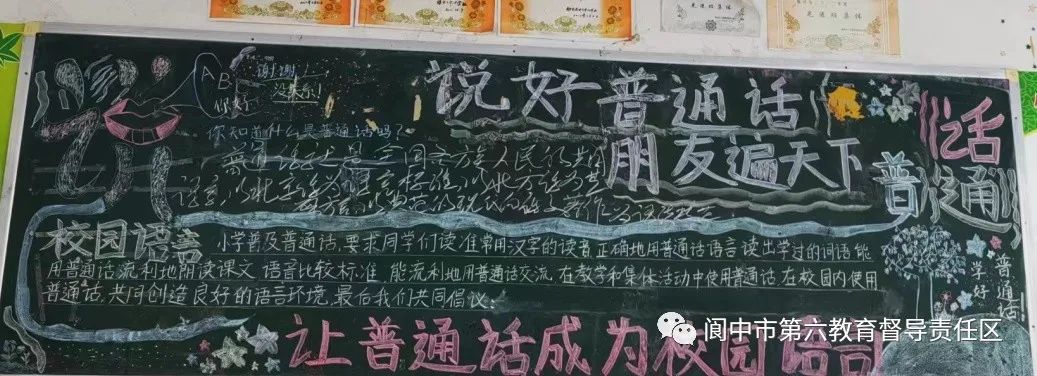 先进班集体
先进班集体
A
B
你好
谢谢!
没关系!
说好普通话
朋友遍天下
你知道什么是普通话吗?
普通话就是全国各方各族人民的共同
语言,以北京语为语言标准,以北方话为基
校园语言
小学普及普通话,要求同学们读准常用汉字的读音,正确地用普通话语言读出学过的词语,能
用普通话流利地朗读课文,语音比较标准,能流利地用普通话交流,在教学和集体活动中使用普通话,在校园内使用
普通话,共同创造良好的语言环境,最后我们共同倡议:
让普通话成为校园语言
普通话
学好
普通话!
阆中市第六教育督导责任区